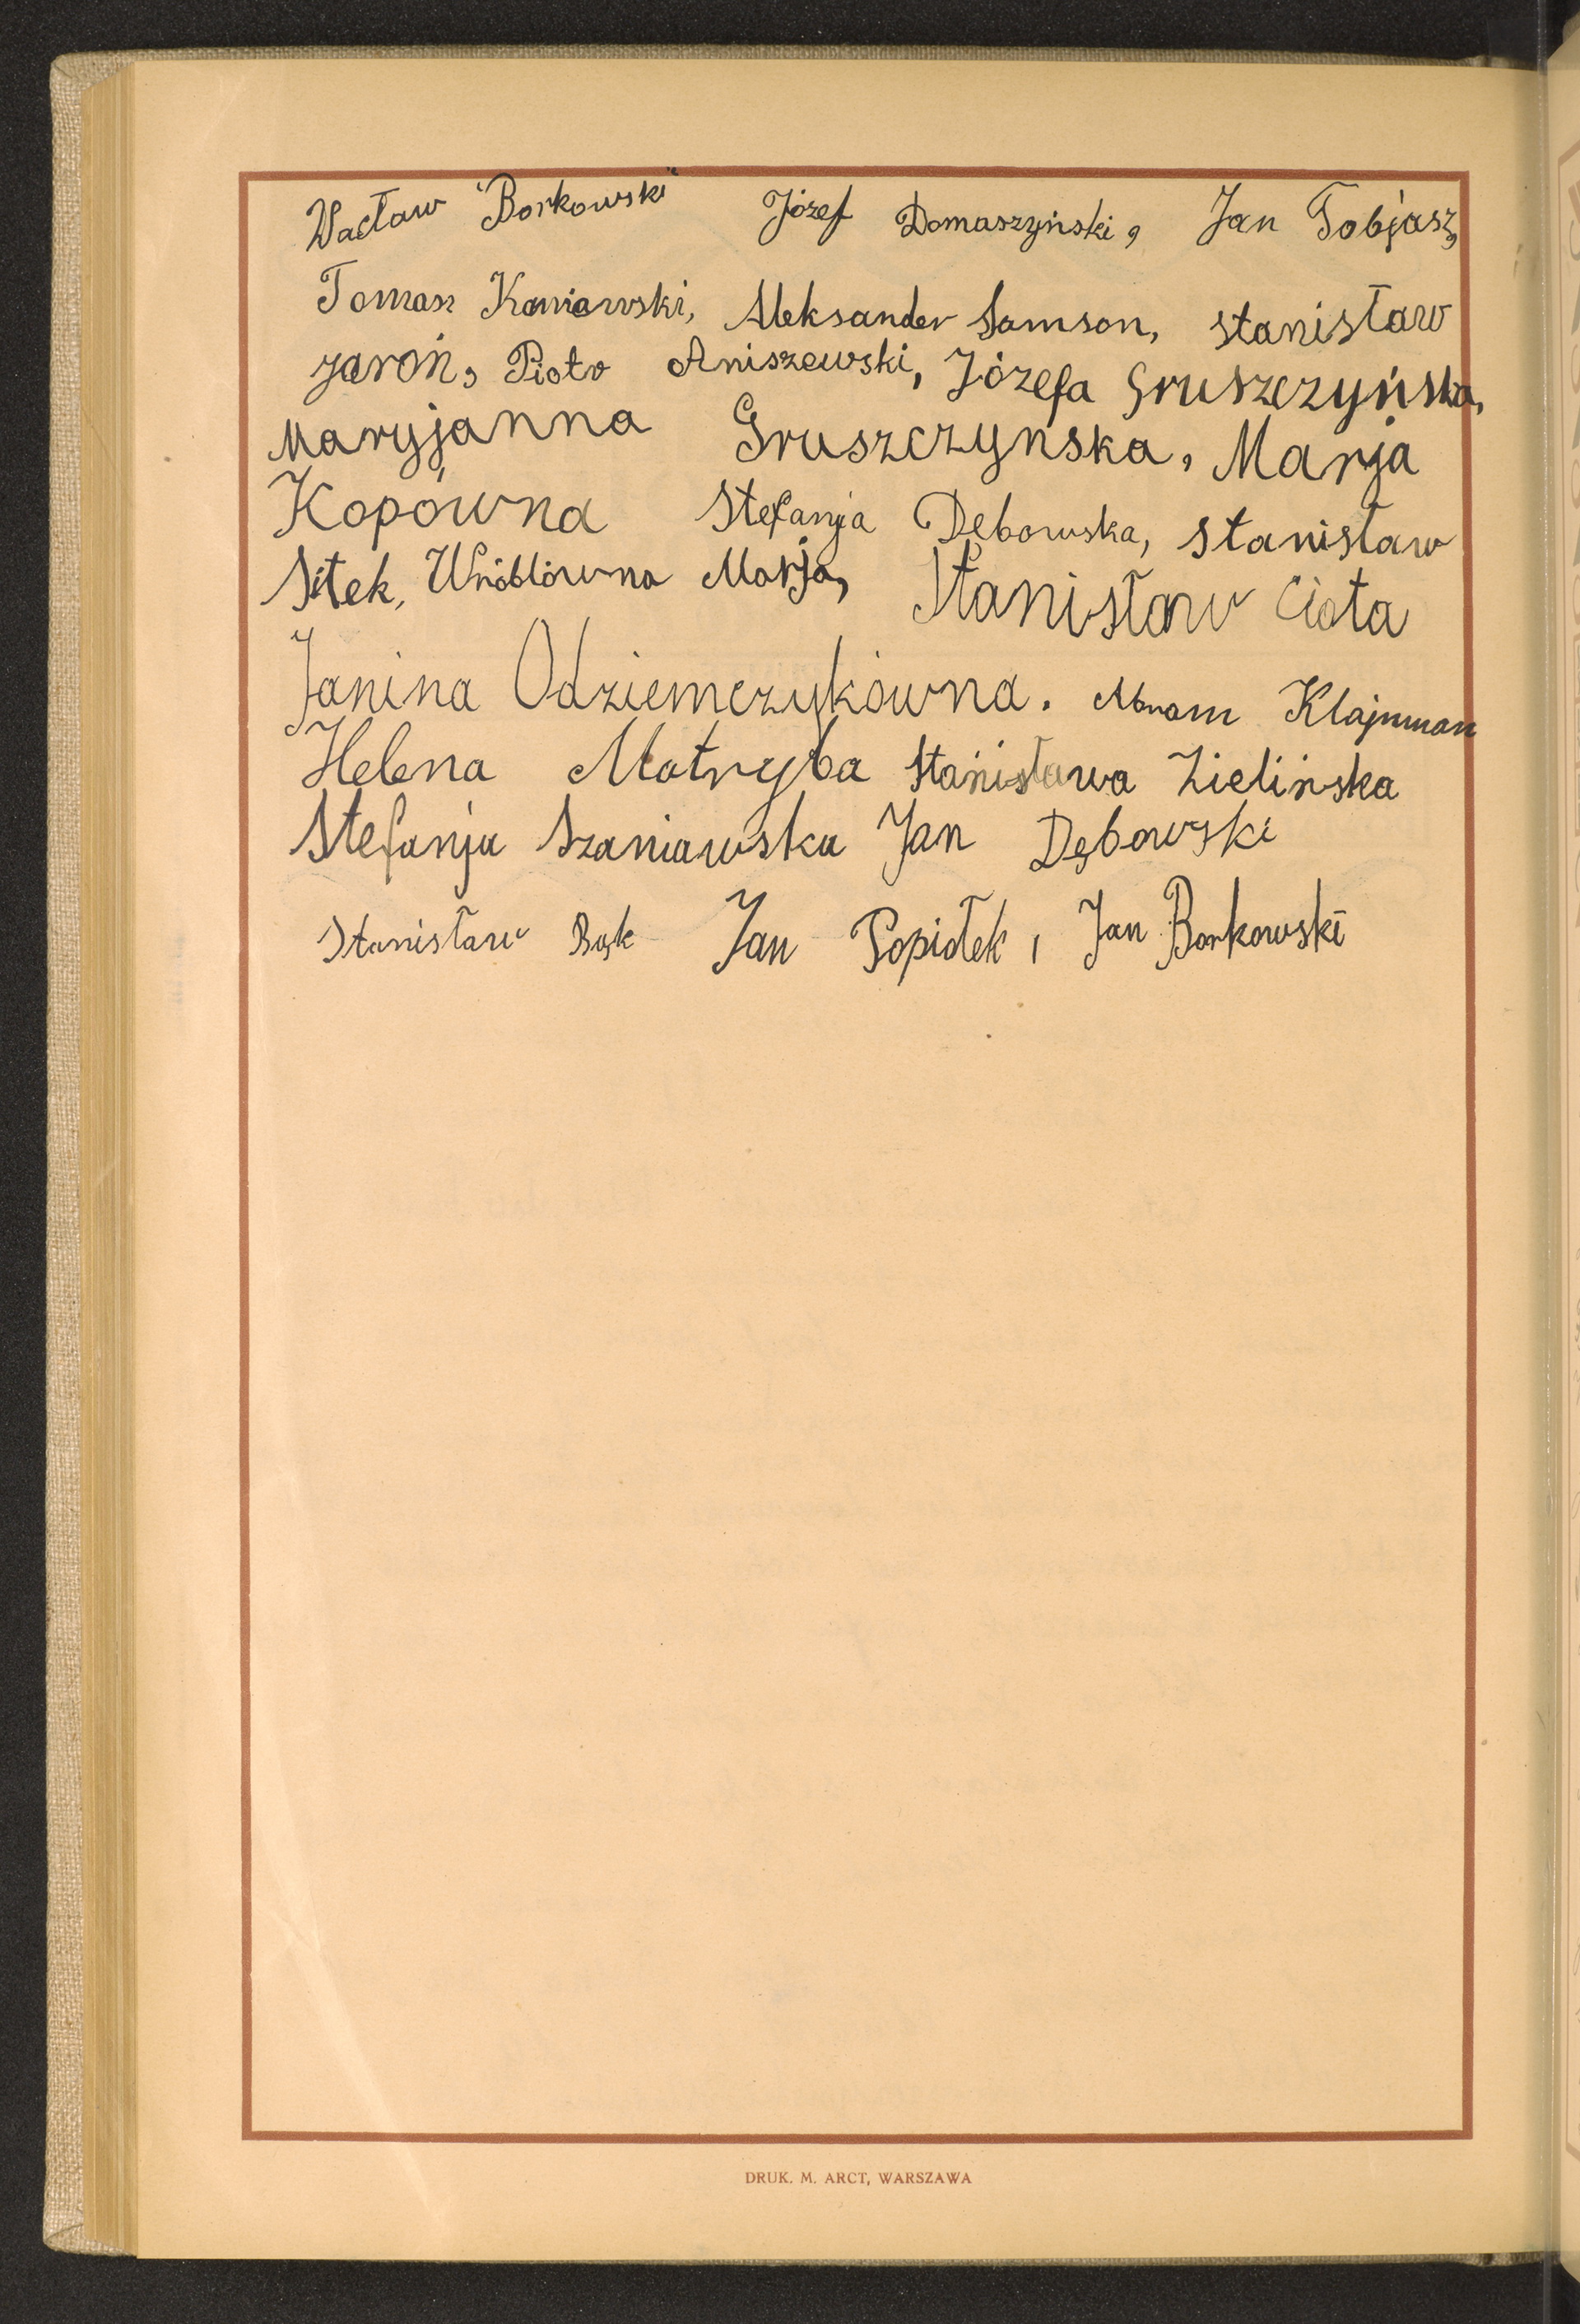 Wacław "Borkowski" Józef Domaszyński, Jan Tobjasz,
Tomasz Kaniawski, Aleksander Samson, stanisław
jaroń, Piotr Aniszewski, Józefa Gruszczyńska,
Maryjanna Gruszczynska, Marja
Kopówna Stefanja Dębowska, stanisław
Sitek, Wróblówna Marja, Stanisław Ciota
Janina Odziemczykówna. Abram Klajnman
Helena Matryba Stanisława Zielińska
Stefanja Szaniawska Jan Dębowski
Stanisław Bąk Jan Popiołek, Jan Borkowski
DRUK. M. ARCT, WARSZAWA